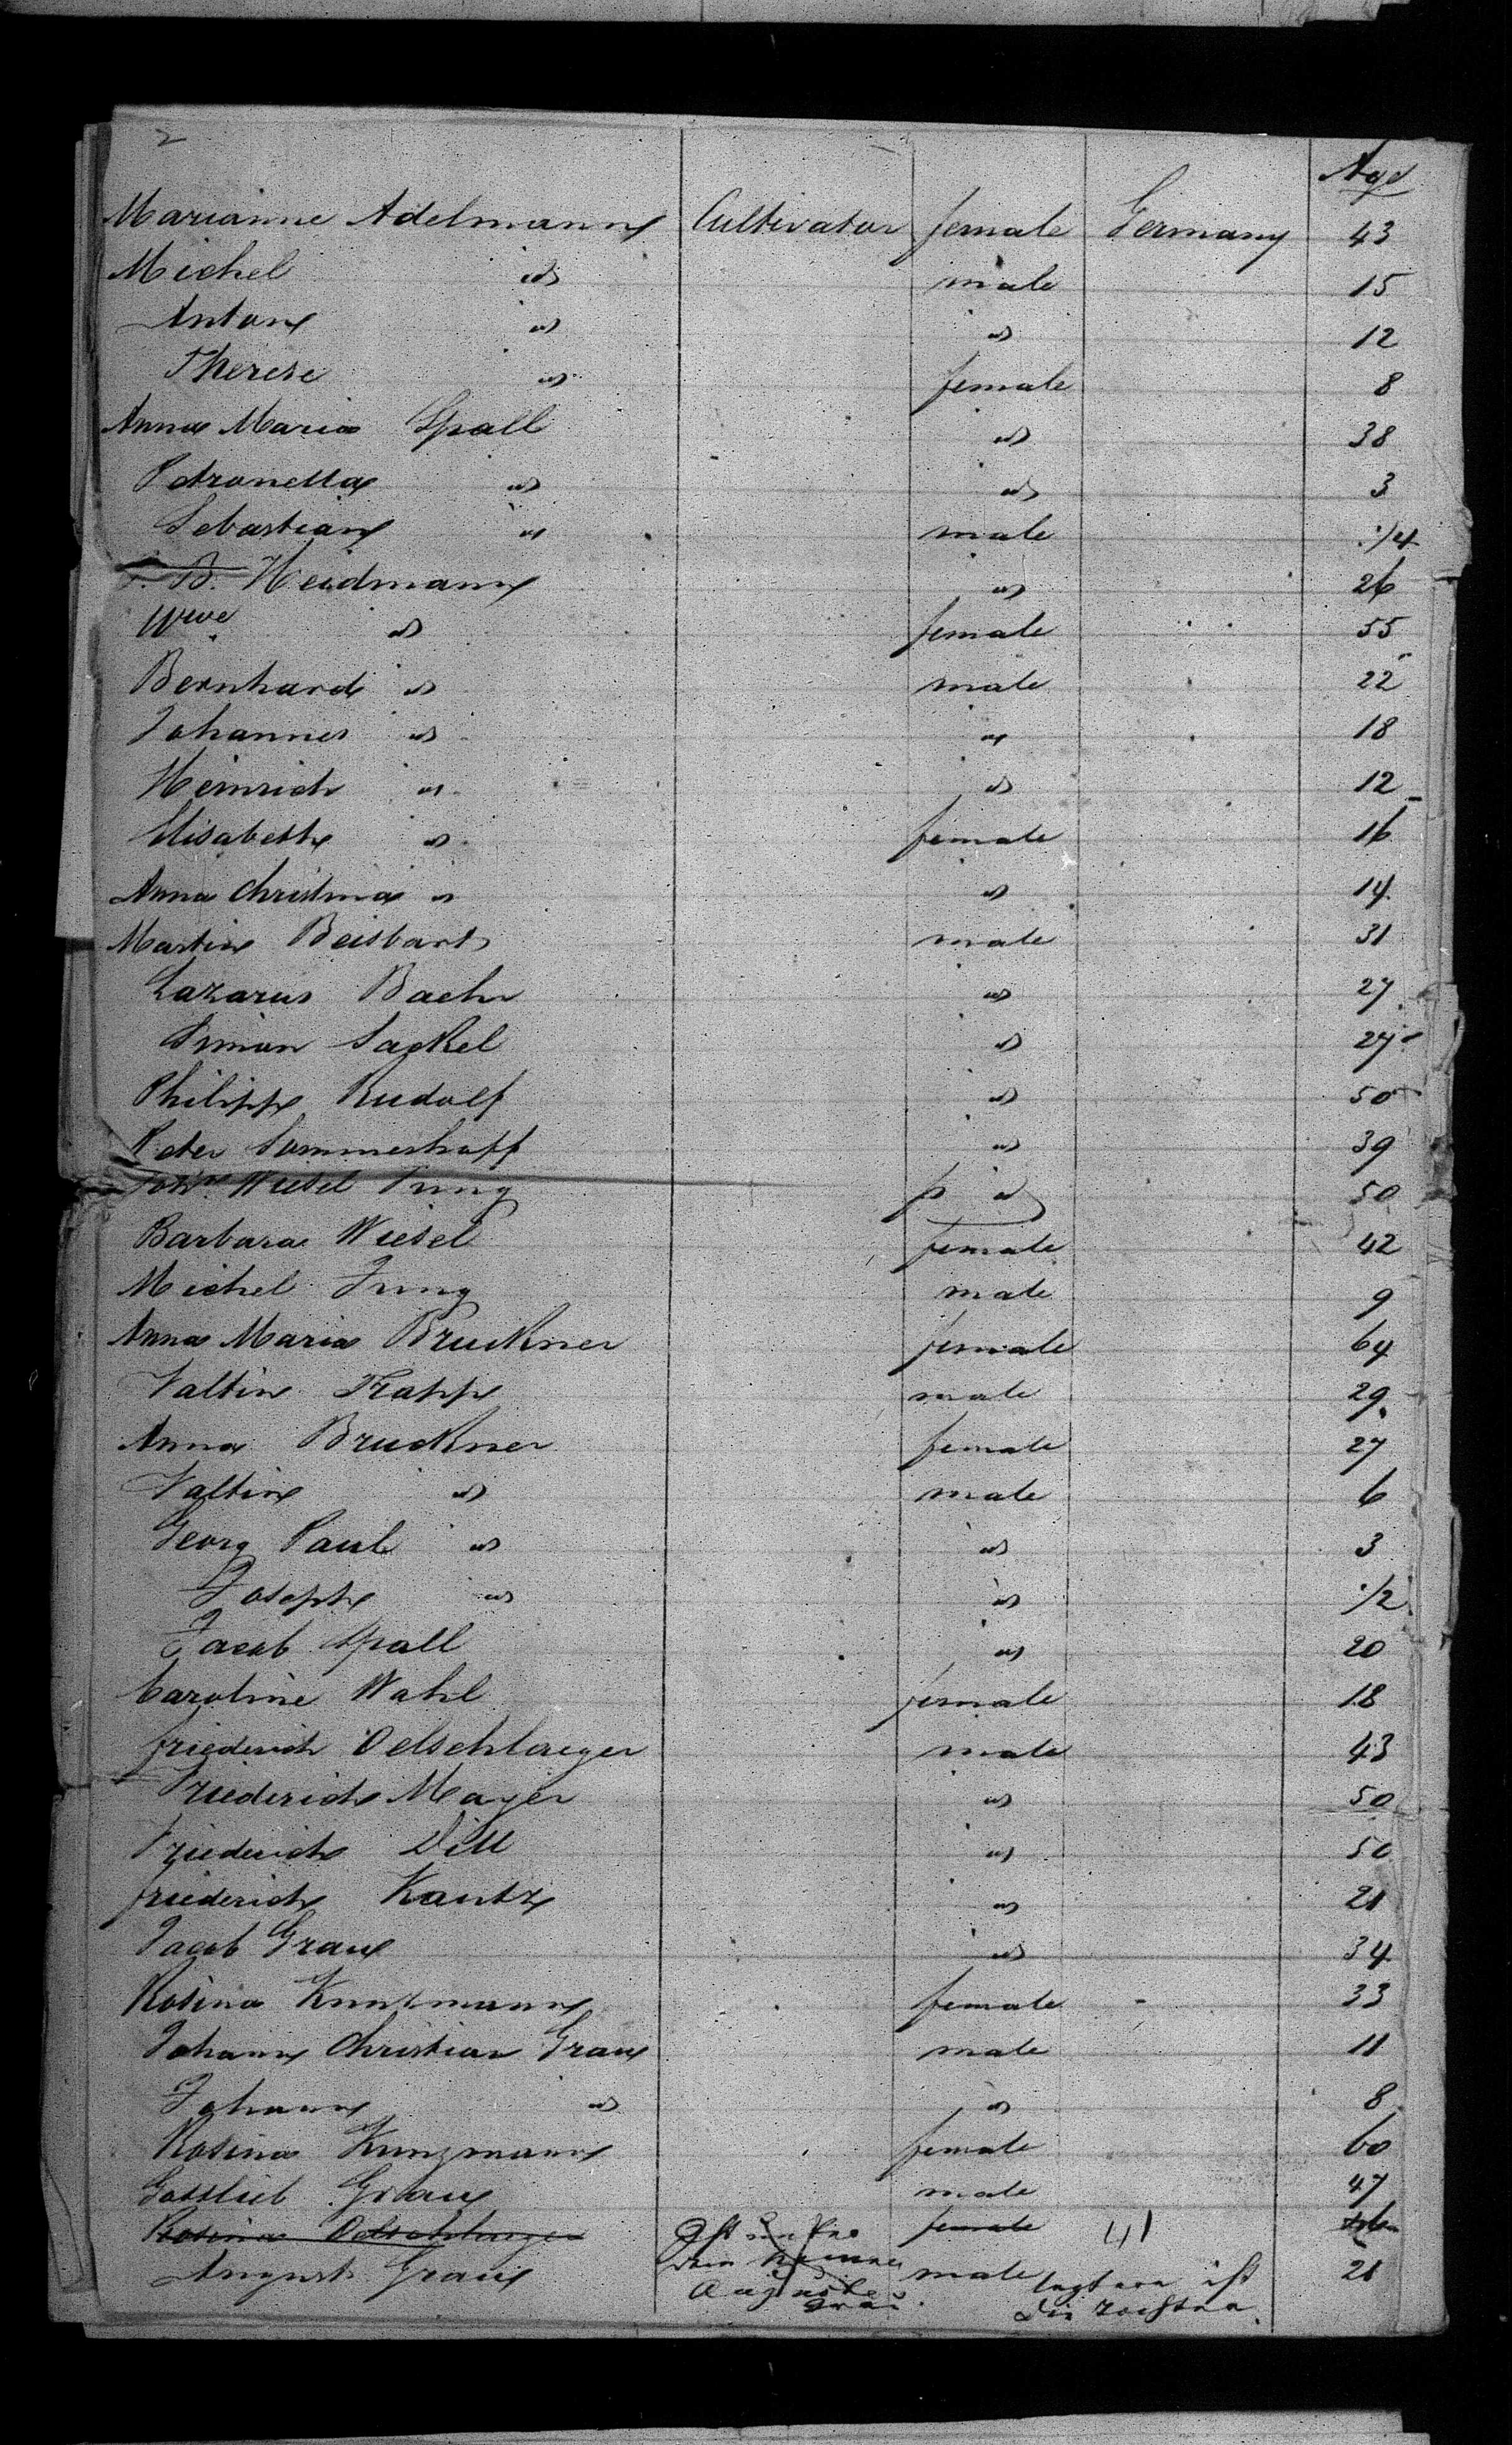 2
Age
Marianne Adelmann Cultivator female Germany 43
Michel do male 15
Anton do do 12
Therese do female 8
Anna Maria Spall do 38
Petronella do do 3
Sebastian do male 1/4
B. Heidmann do 26
Wwe do female 55
Bernhard do male 22
Johannes do do 18
Heinrich do do 12
Elisabeth do female 16
Anna Christina do do 14
Martin Beisbart male 31
Lazarus Bach do 27
Simon Sackel do 27
Philipp Rudolf do 50
Peter Sommerhoff do 39
Wiesel Jung do 50
Barbara Wiesel female 42
Michel Jung male 9
Anna Maria Bruckner female 64
Valtin Trapp male 29
Anna Bruckner female 27
Valtin do male 6
Georg Paul do do 3
Joseph do do 1/2
Jacob Spall do 20
Caroline Wahl female 18
Friederich Oelschlaeger male 43
Friederich Mayer do 50
Friederich Dill do 50
Friederich Kautz do 21
Jacob Grau do 34
Rosina Kunzmann female 33
Johann Christian Grau male 11
Johann do do 8
Rosina Kunzmann female 60
Gottlieb Grau male 47
Rosina Oelschlaeger female 41
August Grau male 21